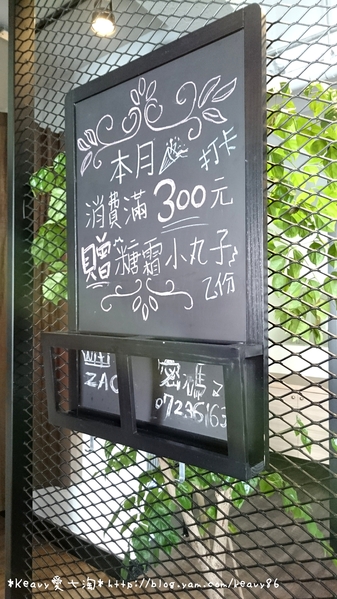 本月 打卡
消費滿300元
贈糖霜小丸子
乙份
ZAC
密碼
*Keavy愛七淘*http://blog.yam.com/keavy86